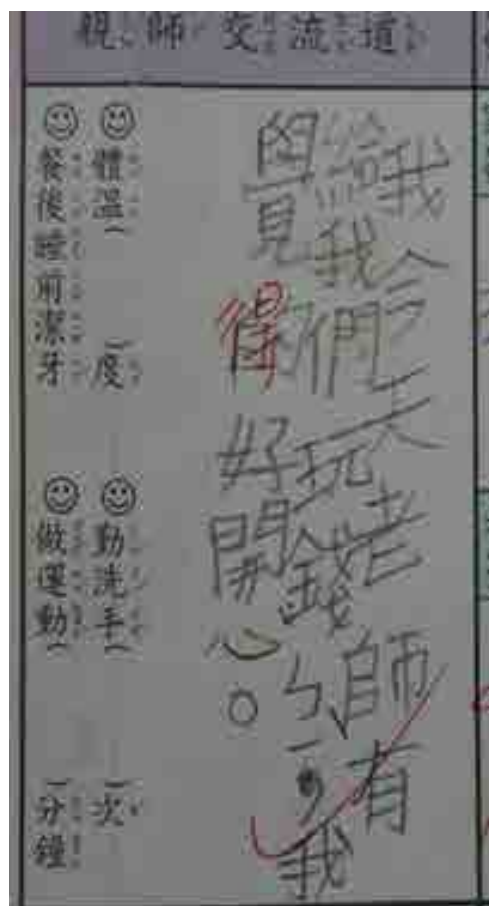 親師交流道
我今天老師有
給我們玩錢ㄅㄧˋ,我
覺得好開心。
體溫( )度
勤洗手( )次
餐後睡前潔牙
做運動( )分鐘